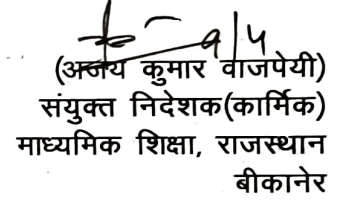 (अजय कुमार वाजपेयी)
संयुक्त निदेशक(कार्मिक)
माध्यमिक शिक्षा, राजस्थान
बीकानेर